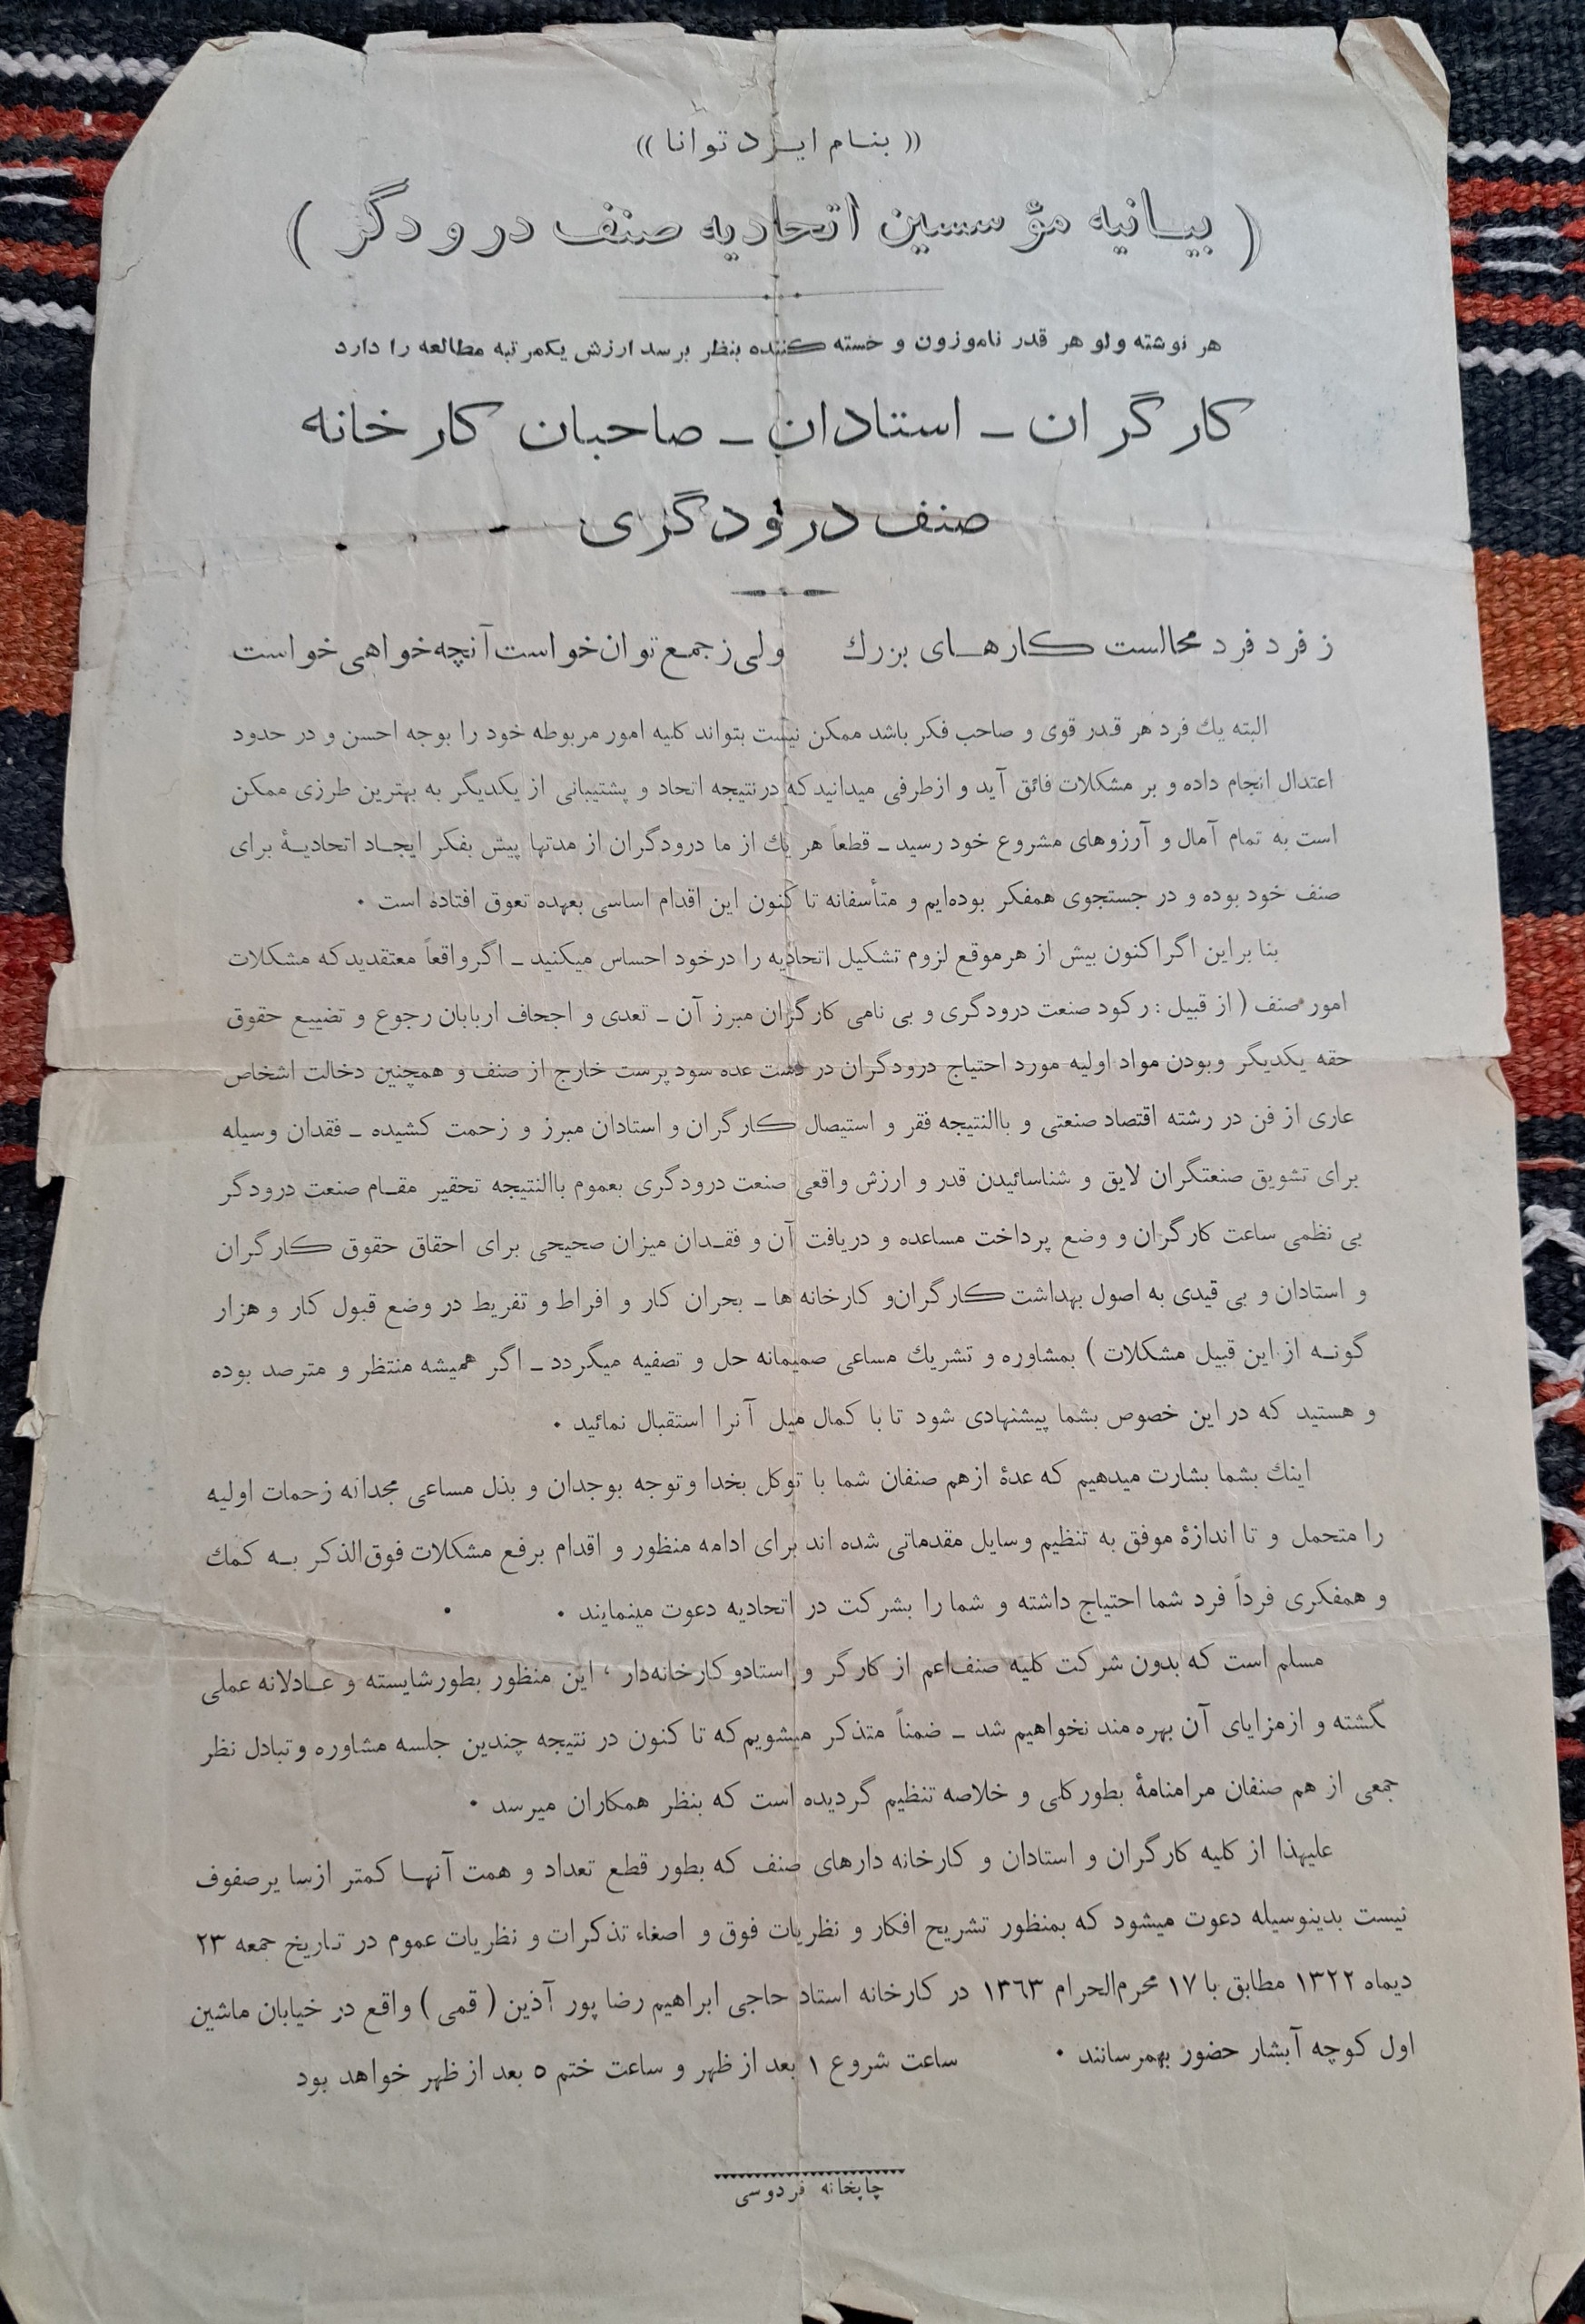 (( بنـام ایـزد توانا ))
( بیـانیه مؤسسین اتحادیه صنف درودگر )
هر نوشته ولو هر قدر ناموزون و خسته کننده بنظر برسد ارزش یکمرتبه مطالعه را دارد
کارگران ـ استادان ـ صاحبان کارخانه
صنف درودگری
ز فرد فرد محالست کارهـای بزرك ولی ز جمع توان خواست آنچه خواهی خواست
البته یك فرد هر قدر قوی و صاحب فکر باشد ممکن نیست بتواند کلیه امور مربوطه خود را بوجه احسن و در حدود
اعتدال انجام داده و بر مشکلات فائق آید و ازطرفی میدانید که درنتیجه اتحاد و پشتیبانی از یکدیگر به بهترین طرزی ممکن
است به تمام آمال و آرزوهای مشروع خود رسید ـ قطعاً هر یك از ما درودگران از مدتها پیش بفکر ایجـاد اتحادیـۀ برای
صنف خود بوده و در جستجوی همفکر بوده‌ایم و متأسفانه تا کنون این اقدام اساسی بعهده تعوق افتاده است .
بنا براین اگر اکنون بیش از هرموقع لزوم تشکیل اتحادیه را درخود احساس میکنید ـ اگر واقعاً معتقدید که مشکلات
امور صنف ( از قبیل : رکود صنعت درودگری و بی نامی کارگران مبرز آن ـ تعدی و اجحاف اربابان رجوع و تضییع حقوق
حقه یکدیگر وبودن مواد اولیه مورد احتیاج درودگران در دست عده سود پرست خارج از صنف و همچنین دخالت اشخاص
عاری از فن در رشته اقتصاد صنعتی و باالنتیجه فقر و استیصال کارگران و استادان مبرز و زحمت کشیده ـ فقدان وسیله
برای تشویق صنعتگران لایق و شناسائیدن قدر و ارزش واقعی صنعت درودگری بعموم باالنتیجه تحقیر مقـام صنعت درودگر
بی نظمی ساعت کارگران و وضع پرداخت مساعده و دریافت آن و فقـدان میزان صحیحی برای احقاق حقوق کارگران
و استادان و بی قیدی به اصول بهداشت کارگران‌و کارخانه ها ـ بحران کار و افراط و تفریط در وضع قبول کار و هزار
گونـه از این قبیل مشکلات ) بمشاوره و تشریك مساعی صمیمانه حل و تصفیه میگردد ـ اگر همیشه منتظر و مترصد بوده
و هستید که در این خصوص بشما پیشنهادی شود تا با کمال میل آنرا استقبال نمائید .
اینك بشما بشارت میدهیم که عدۀ ازهم صنفان شما با توکل بخدا وتوجه بوجدان و بذل مساعی مجدانه زحمات اولیه
را متحمل و تا اندازۀ موفق به تنظیم وسایل مقدماتی شده اند برای ادامه منظور و اقدام برفع مشکلات فوق‌الذکر بـه کمك
و همفکری فرداً فرد شما احتیاج داشته و شما را بشرکت در اتحادیه دعوت مینمایند .
مسلم است که بدون شرکت کلیه صنف‌اعم از کارگر و استادو کارخانه‌دار ، این منظور بطورشایسته و عـادلانه عملی
گشته و ازمزایای آن بهره مند نخواهیم شد ـ ضمناً متذکر میشویم که تا کنون در نتیجه چندین جلسه مشاوره وتبادل نظر
جمعی از هم صنفان مرامنامۀ بطورکلی و خلاصه تنظیم گردیده است که بنظر همکاران میرسد .
علیهذا از کلیه کارگران و استادان و کارخانه دارهای صنف که بطور قطع تعداد و همت آنهـا کمتر ازسایرصفوف
نیست بدینوسیله دعوت میشود که بمنظور تشریح افکار و نظریات فوق و اصغاء تذکرات و نظریات عموم در تاریخ جمعه ۲۳
دیماه ۱۳۲۲ مطابق با ۱۷ محرم‌الحرام ۱۳٦۳ در کارخانه استاد حاجی ابراهیم رضا پور آذین ( قمی ) واقع در خیابان ماشین
اول کوچه آبشار حضور بهمرسانند . ساعت شروع ۱ بعد از ظهر و ساعت ختم ٥ بعد از ظهر خواهد بود
چاپخانه فردوسی